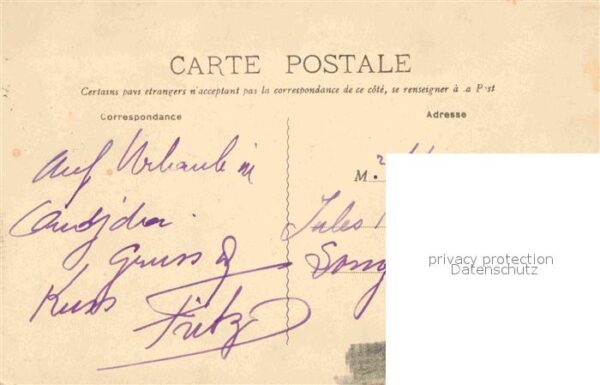 CARTE POSTALE
Certains pays etrangers n'acceptant pas la correspondance de ce côté, se renseigner à la Post
Correspondance
Adresse
Auf Urlaub in
M.
Jules
Gruss &
Kuss
Fritz
privacy protection
Datenschutz